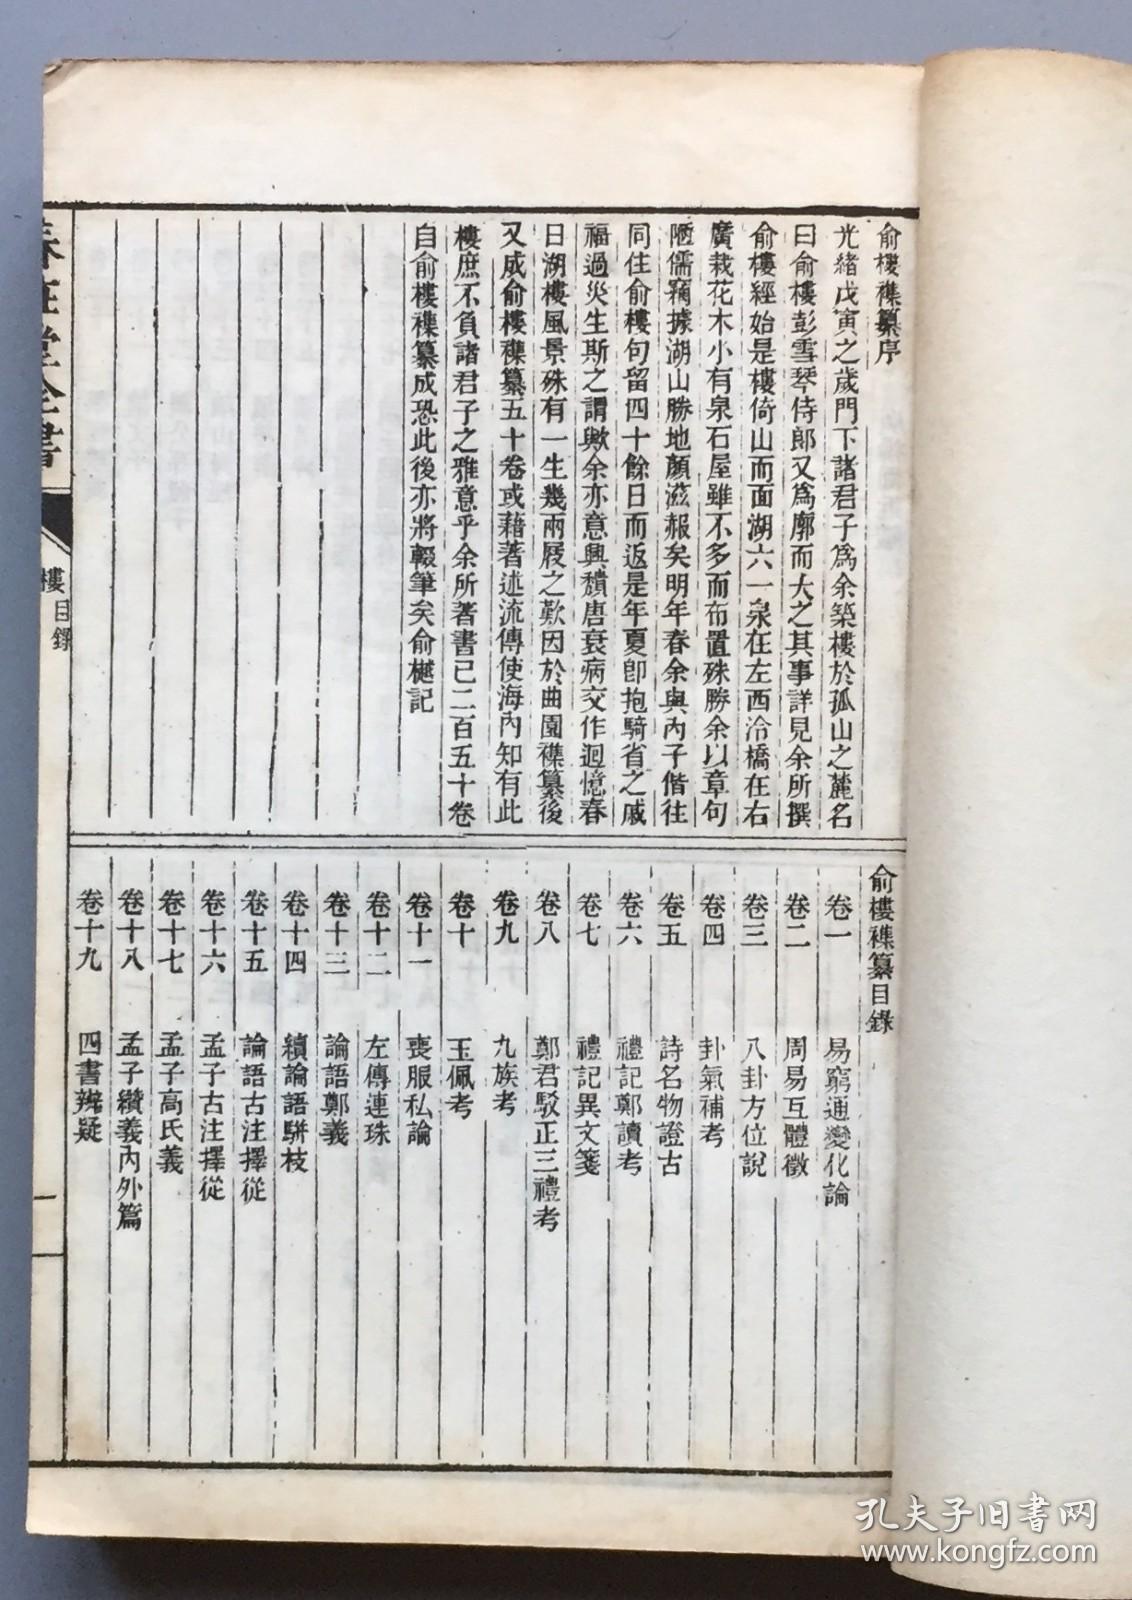 俞樓襍纂序
光緒戊寅之歲門下諸君子爲余築樓於孤山之麓名
曰俞樓彭雪琴侍郎又爲廓而大之其事詳見余所撰
俞樓經始是樓倚山而面湖六一泉在左西泠橋在右
廣栽花木小有泉石屋雖不多而布置殊勝余以章句
陋儒竊據湖山勝地顏滋赧矣明年春余與內子偕往
同住俞樓句留四十餘日而返是年夏卽抱騎省之戚
福過災生斯之謂歟余亦意興穨唐衰病交作迴憶春
日湖樓風景殊有一生幾兩屐之歎因於曲園襍纂後
又成俞樓襍纂五十卷或藉著述流傳使海內知有此
樓庶不負諸君子之雅意乎余所著書已二百五十卷
自俞樓襍纂成恐此後亦將輟筆矣俞樾記
俞樓襍纂目錄
卷一 易窮通變化論
卷二 周易互體徵
卷三 八卦方位說
卷四 卦氣補考
卷五 詩名物證古
卷六 禮記鄭讀考
卷七 禮記異文箋
卷八 鄭君駁正三禮考
卷九 九族考
卷十 玉佩考
卷十一 喪服私論
卷十二 左傳連珠
卷十三 論語鄭義
卷十四 續論語駢枝
卷十五 論語古注擇從
卷十六 孟子古注擇從
卷十七 孟子高氏義
卷十八 孟子纘義內外篇
卷十九 四書辨疑
春在堂全書
樓目錄
一
孔夫子旧书网
www.kongfz.com